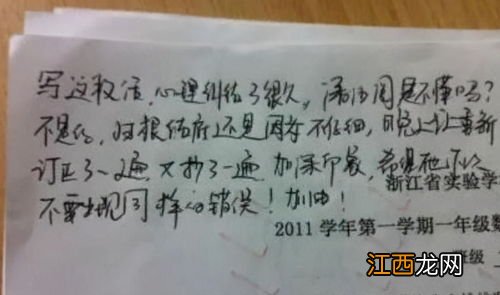 写这段话,心里纠结了很久,潘沛周是不懂吗?
不是的,归根结底还是因为不仔细,昨晚上让重新
订正了一遍又抄了一遍 加深印象,希望他下次
不要出现同样的错误!加油!
浙江省实验学
2011 学年第一学期一年级数
班级
江西龙网